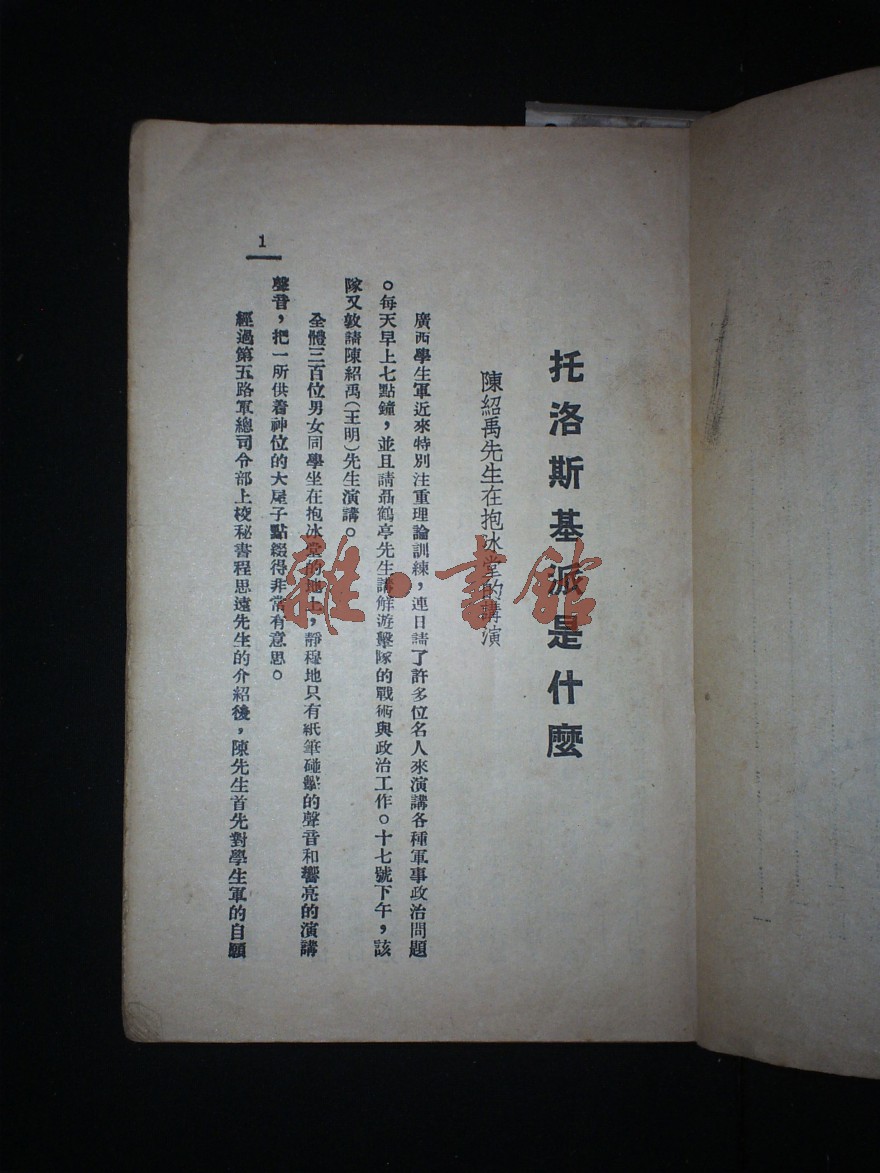 托洛斯基派是什麼
陳紹禹先生在抱冰堂的講演
廣西學生軍近來特別注重理論訓練，連日請了許多位名人來演講各種軍事政治問題
。每天早上七點鐘，並且請聶鶴亭先生講解游擊隊的戰術與政治工作。十七號下午，該
隊又敦請陳紹禹（王明）先生演講。
全體三百位男女同學坐在抱冰堂的地上，靜穆地只有紙筆碰擊的聲音和響亮的演講
聲音，把一所供着神位的大屋子點綴得非常有意思。
經過第五路軍總司令部上校秘書程思遠先生的介紹後，陳先生首先對學生軍的自願
1
雜·書館